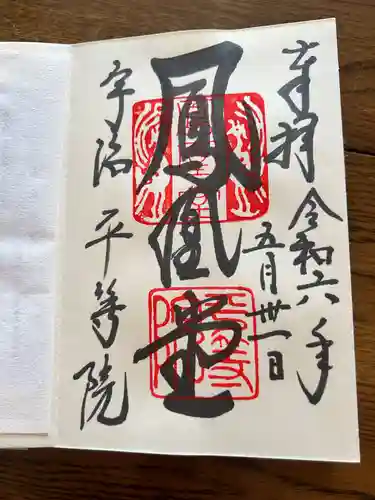 奉拝
令和六年
五月卅一日
鳳凰堂
宇治
平等院